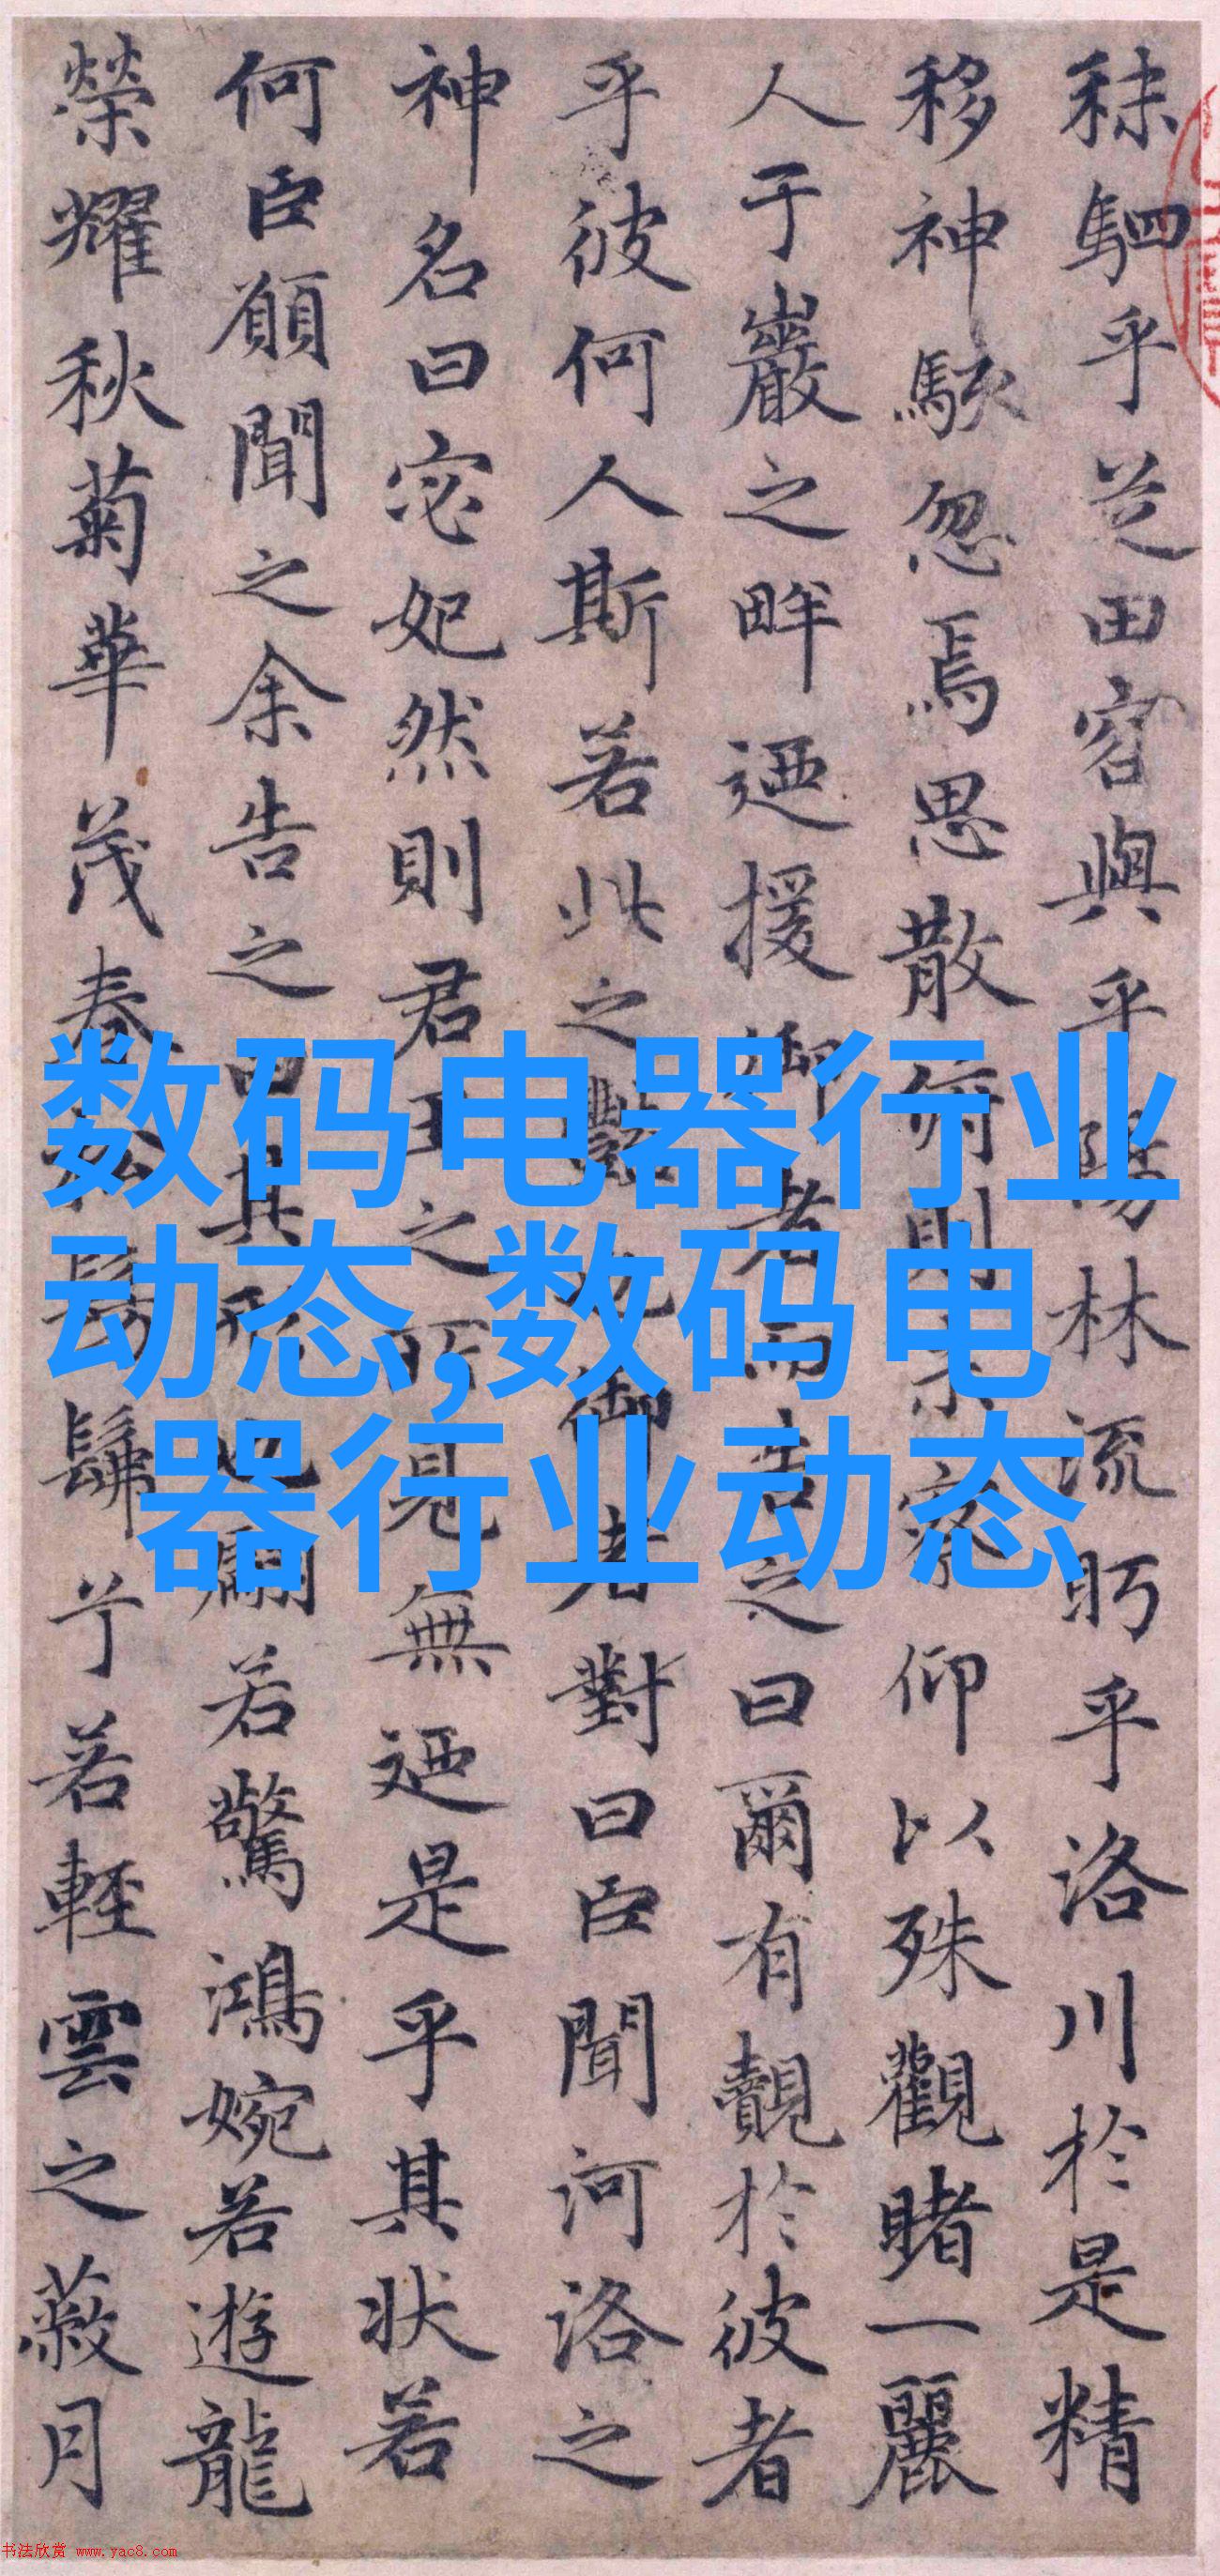 秣駟乎芝田容與乎陽林流眄乎洛川於是精
移神駭忽焉思散俯則未察仰以殊觀睹一麗
人于巖之畔迺援御者而告之曰爾有覿於彼者
乎彼何人斯若此之豔也御者對曰臣聞河洛之
神名曰宓妃然則君王之所見無迺是乎其狀若
何臣願聞之余告之曰其形也翩若驚鴻婉若遊龍
榮耀秋菊華茂春松髣髴兮若輕雲之蔽月
数码电器行业
动态,数码电
器行业动态
书法欣赏 www.yac8.com